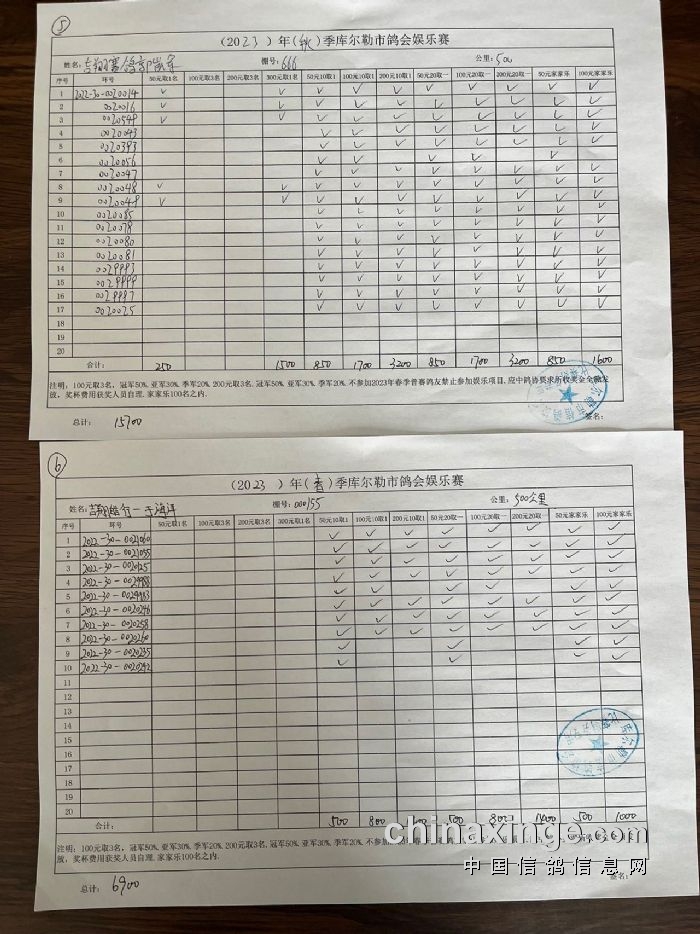 5
（2023）年（秋）季库尔勒市鸽会娱乐赛
姓名: 棚号: 666 公里: 500
序号 环号 50元取1名 100元取3名 200元取3名 300元取1名 50元10取1 100元10取1 200元10取1 50元20取一 100元20取一 200元20取一 50元家家乐 100元家家乐
1 2022-30-0020014 ✓ ✓ ✓ ✓ ✓ ✓ ✓ ✓ ✓ ✓
2 0020016 ✓ ✓ ✓ ✓ ✓ ✓ ✓ ✓ ✓ ✓
3 0020549 ✓ ✓ ✓ ✓ ✓ ✓ ✓ ✓ ✓ ✓
4 0020043 ✓ ✓ ✓ ✓ ✓ ✓ ✓ ✓
5 0020393 ✓ ✓ ✓ ✓ ✓ ✓ ✓ ✓
6 0020056 ✓ ✓ ✓ ✓ ✓
7 0020047 ✓ ✓ ✓ ✓ ✓ ✓ ✓ ✓
8 0020048 ✓ ✓ ✓ ✓ ✓ ✓ ✓ ✓ ✓ ✓
9 0020049 ✓ ✓ ✓ ✓ ✓ ✓ ✓ ✓ ✓ ✓
10 0020085 ✓ ✓ ✓ ✓ ✓ ✓ ✓ ✓
11 0020078 ✓ ✓ ✓ ✓ ✓ ✓ ✓ ✓
12 0020080 ✓ ✓ ✓ ✓ ✓ ✓ ✓ ✓
13 0020081 ✓ ✓ ✓ ✓ ✓ ✓ ✓ ✓
14 0029993 ✓ ✓ ✓ ✓ ✓ ✓ ✓ ✓
15 0029999 ✓ ✓ ✓ ✓ ✓ ✓ ✓ ✓
16 0029997 ✓ ✓ ✓ ✓ ✓ ✓ ✓ ✓
17 0020025 ✓ ✓ ✓ ✓ ✓ ✓ ✓ ✓
18
19
20
合计: 250 1500 850 1700 3200 850 1700 3200 850 1600
注明: 100元取3名, 冠军50%, 亚军30%, 季军20%, 200元取3名, 冠军50%, 亚军30%, 季军20%, 不参加2023年春季普赛鸽友禁止参加娱乐项目, 应中鸽协要求所收奖金全额发
放, 奖杯费用获奖人员自理, 家家乐100名之内.
总计: 15700 签名:
6
（2023）年（春）季库尔勒市鸽会娱乐赛
姓名: 棚号: 000155 公里: 500公里
序号 环号 50元取1名 100元取3名 200元取3名 300元取1名 50元10取1 100元10取1 200元10取1 50元20取一 100元20取一 200元20取一 50元家家乐 100元家家乐
1 2022-30-0021060 ✓ ✓ ✓ ✓ ✓ ✓ ✓ ✓
2 2022-30-0021055 ✓ ✓ ✓ ✓ ✓ ✓ ✓ ✓
3 2022-30-0020125 ✓ ✓ ✓ ✓ ✓ ✓ ✓ ✓
4 2022-30-0029988 ✓ ✓ ✓ ✓ ✓ ✓ ✓ ✓
5 2022-30-0029983 ✓ ✓ ✓ ✓ ✓ ✓
6 2022-30-0020246 ✓ ✓ ✓ ✓ ✓ ✓ ✓ ✓
7 2022-30-0020258 ✓ ✓ ✓ ✓ ✓ ✓ ✓ ✓
8 2022-30-0020260 ✓ ✓ ✓ ✓ ✓ ✓ ✓ ✓
9 2022-30-0020235 ✓ ✓ ✓ ✓
10 2022-30-0020242 ✓ ✓ ✓ ✓
11
12
13
14
15
16
17
18
19
20
合计: 500 800 500 800 1400 500 1000
注明: 100元取3名, 冠军50%, 亚军30%, 季军20%, 200元取3名, 冠军50%, 亚军30%, 季军20%, 不参加
放, 奖杯费用获奖人员自理, 家家乐100名之内.
总计: 6900 签名:
chinaxinge.com
中国信鸽信息网